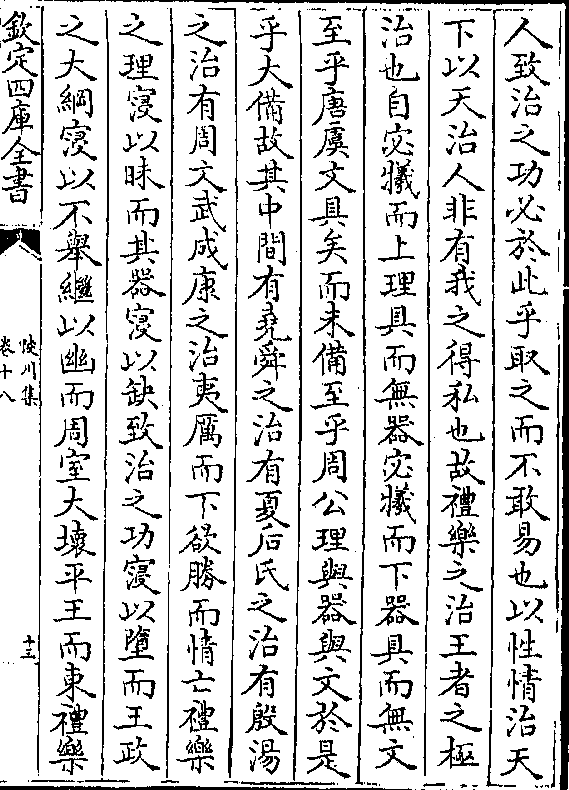 人致治之功必於此乎取之而不敢易也以性情治天
下以天治人非有我之得私也故禮樂之治王者之極
治也自宓犧而上理具而無器宓犧而下器具而無文
至乎唐虞文具矣而未備至乎周公理與器與文於是
乎大備故其中間有堯舜之治有夏后氏之治有殷湯
之治有周文武成康之治夷厲而下欲勝而情亡禮樂
之理寖以昧而其器寖以缺致治之功寖以墮而王政
之大綱寖以不舉繼以幽而周室大壞平王而東禮樂
欽定四庫全書
陵川集
卷十八
十三